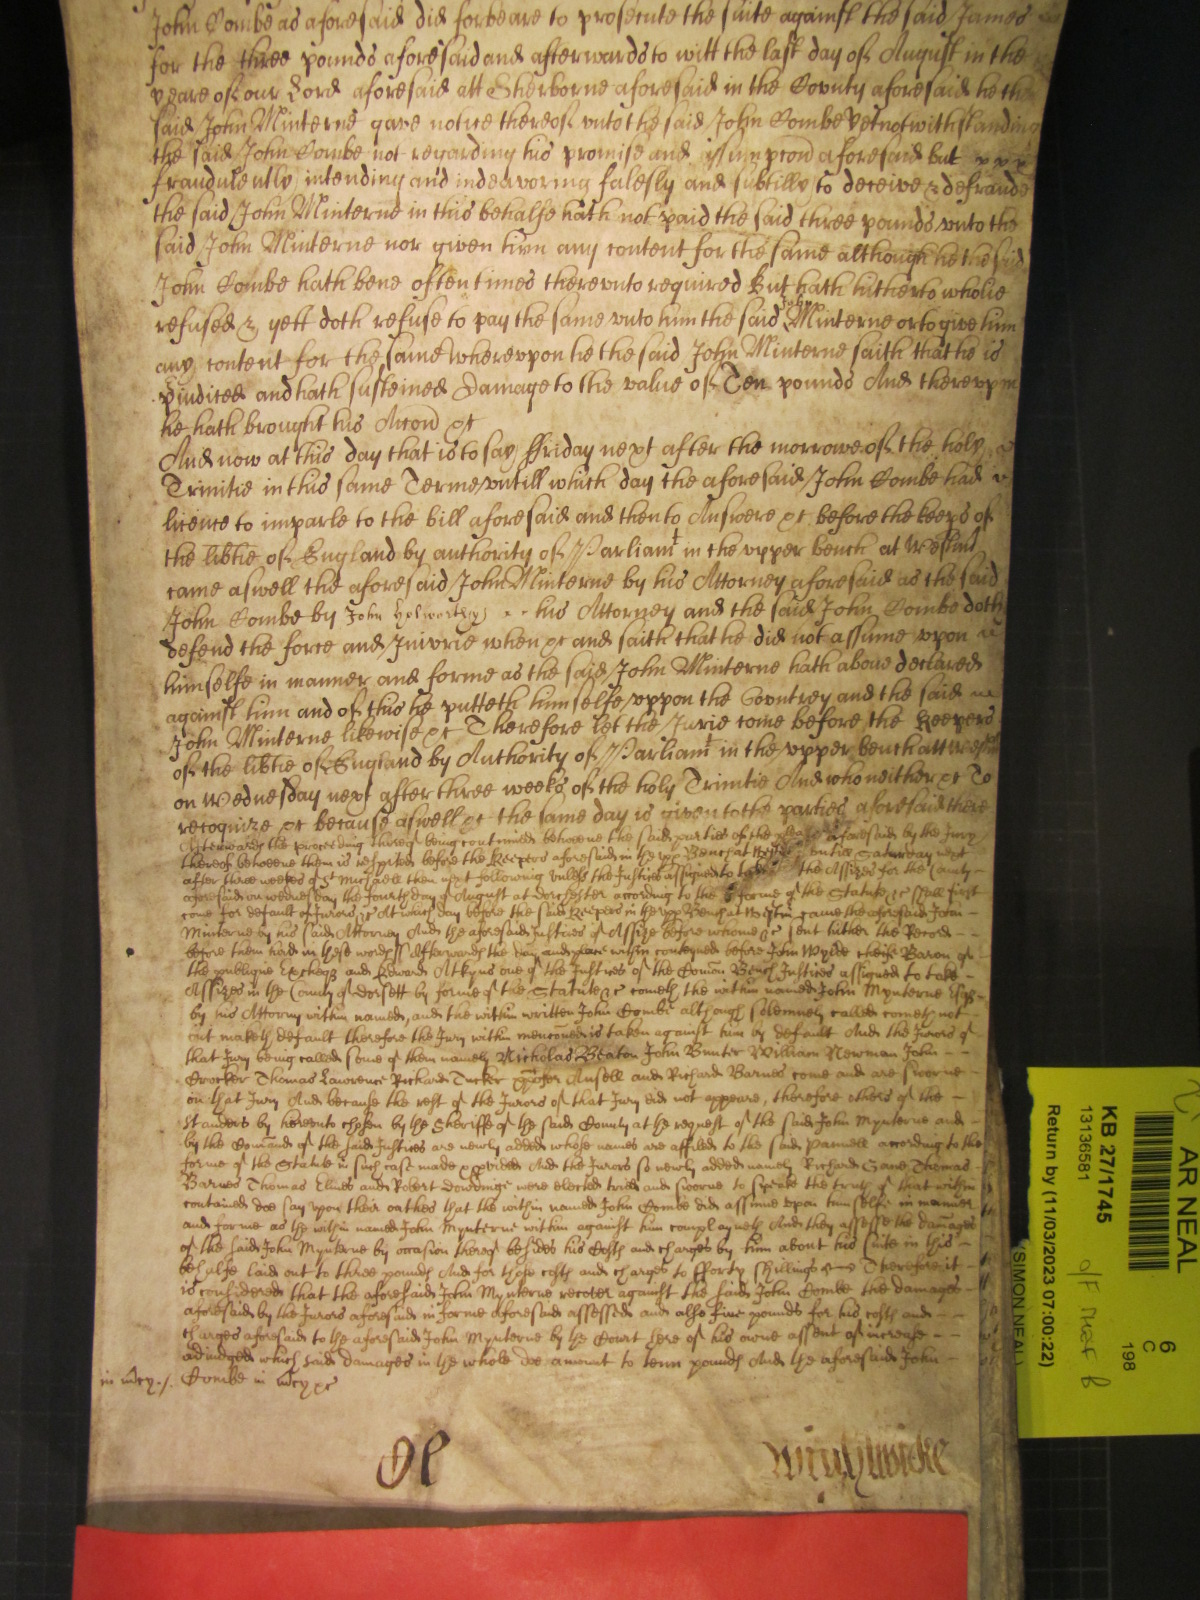 John Combe as aforesaid did forbeare to prosecute the suite against the said James
for the three pounds aforesaid and afterwards to witt the last day of August in the
yeare of our Lord aforesaid att Sherborne aforesaid in the County aforesaid he the
said John Minterne gave notice thereof vnto the said John Combe Yet notwithstanding
the said John Combe not regarding his promise and aforesaid but
fraudulently intending and indeavoring falesly and subtilly to deceive & defraude
the said John Minterne in this behalfe hath not paid the said three pounds vnto the
said John Minterne nor given him any content for the same although he the said
John Combe hath bene often times therevnto required But hath hitherto wholie
refused & yett doth refuse to pay the same vnto him the said John Minterne or to give him
any content for the same wherevpon he the said John Minterne saith that he is
piudiced and hath susteined Damage to the value of Ten pounds And therevpon
he hath brought his Accon &c
And now at this day that is to say ffriday next after the morrowe of the holy
Trinitie in this same Terme vntill which day the aforesaid John Combe had
licence to imparle to the bill aforesaid and then to Answere &c before the keeps of
the libtie of England by authority of Parliamt in the vpper bench at Westmr
came aswell the aforesaid John Minterne by his Attorney aforesaid as the said
John Combe by John his Attorney and the said John Combe doth
defend the force and Iniurie when &c and saith that he did not assume vpon
himselfe in manner and forme as the said John Minterne hath aboue declared
against him and of this he putteth himselfe vppon the Countrey and the said
John Minterne likewise &c Therefore let the Jurie come before the Keepers
of the libtie of England by Authority of Parliamt in the vpper bench att Westmr
on Wednesday next after three weekes of the holy Trinitie And who neither &c To
recognize &c because aswell &c the same day is given to the parties aforesaid there
Afterwards the proceeding thereof being continued betweene the said parties of the plea aforesaid by the Jury
thereof betweene them is respited before the Keepers aforesaid in the vpp Bench at untill Saturday next
after three weekes of St Michaell then next following vnles the Justices assigned to take the Assizes for the County
aforesaid on wednesday the fourth day of August at dorchester according to the forme of the Statute &c shall first
come for default of Jurors &c At which day before the said Keepers in the vpp Bench at Westm came the aforesaid John
Minterne by his said Attorney And the aforesaid Justices of Assize before whome &c sent hither the Record
before them had in these words ss Afterwards the day and place within conteyned before John Wylde cheife Baron of
the publique Excheqr and Edward Atkyns one of the Justices of the Comon Bench Justices assigned to take
Assizes in the County of dorsett by forme of the Statute &c cometh the within named John Mynterne Esqr
by his Attorny within named, and the within written John Combe although solemnely called cometh not
but maketh default therefore the Jury within menconed is taken against him by default And the Jurors of
that Jury being called some of them namely Nicholas Beaton John Bunter William Newman John
Crocker Thomas Lawrence Richard Tucker Ansell and Richard Barnes come and are sworne
on that Jury And because the rest of the Jurors of that Jury did not appeare, therefore others of the
standers by hereunto chosen by the Sheriffe of the said County at the request of the said John Mynterne and
by the Comand of the said Justices are newly added whose names are affiled to the said Pannell according to the
forme of the Statute in such case made & pvided And the Jurors so newly added namely Richard Thomas
Barnes Thomas Elmes and Robert were elected tried and sworne to speake the truth of that within
contained doe say vpon their oathes that the within named John Combe did assume vpon himselfe in manner
and forme as the within named John Mynterne within against him complayneth And they assesse the damages
of the said John Mynterne by occasion thereof besides his Costs and charges by him about his suite in this
behalfe laid out to three pounds And for those costs and charges to fforty shillings Therefore it
is considered that the aforesaid John Mynterne recover against the said John Combe the damages
aforesaid by the Jurors aforesaid in forme aforesaid assessed and also five pounds for his costs and
charges aforesaid to the aforesaid John Mynterne by the Court here of his owne assent of increase
adiudged which said damages in the whole doe amount to tenn pounds And the aforesaid John
in mcy Combe in mcy &c
AR NEAL
6
C
198
KB 27/1745
13136581
Return by (11/03/2023 07:00:22)
(SIMON NEAL)